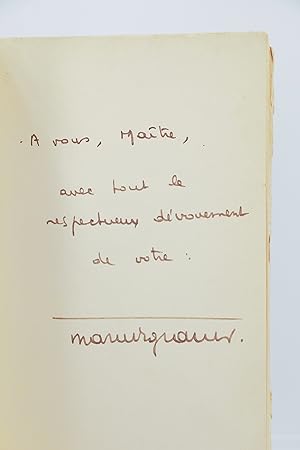 A vous, Maître,
avec tout le
respectueux dévouement
de votre :